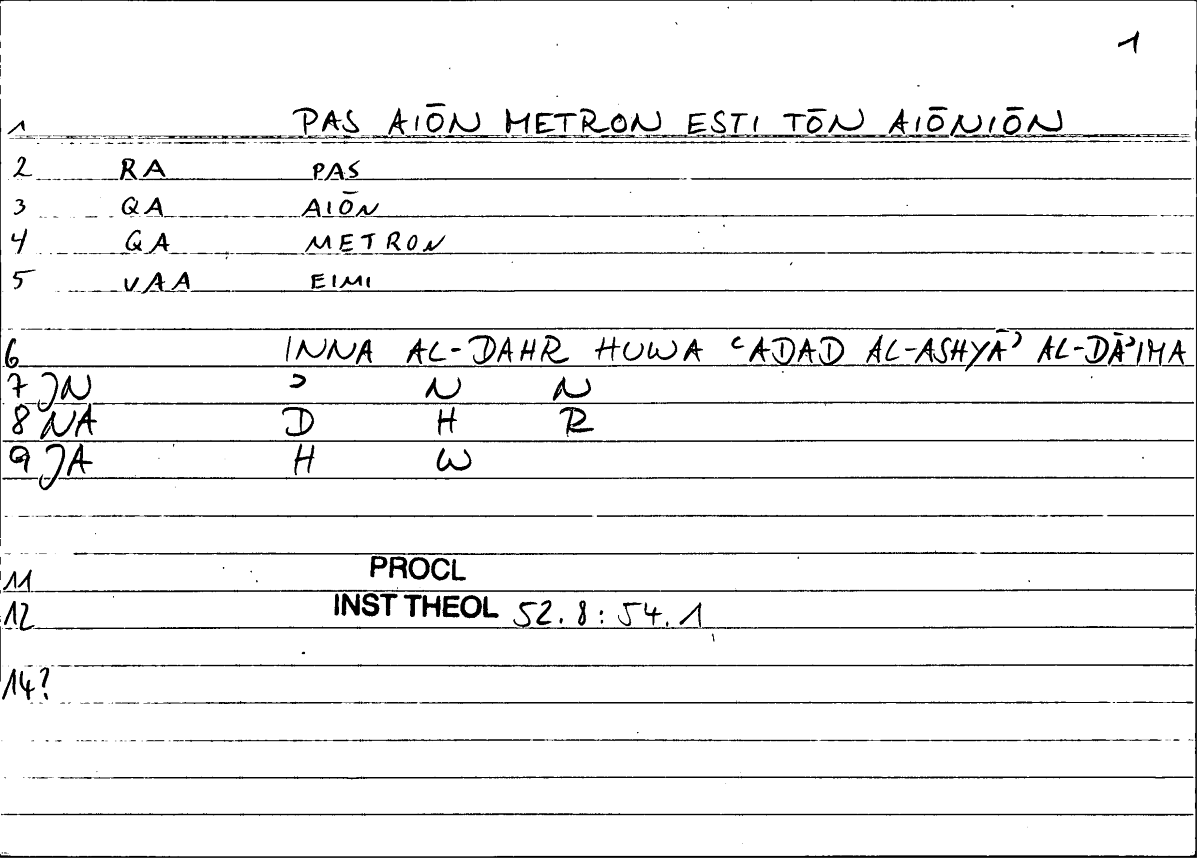 1
1 PAS AIŌN METRON ESTI TŌN AIŌNIŌN
2 RA PAS
3 QA AIŌN
4 QA METRON
5 VAA EIMI
6 INNA AL-DAHR HUWA ʿADAD AL-ASHYĀʾ AL-DĀʾIMA
7 JN ʾ N N
8 NA D H R
9 JA H W
11 PROCL
12 INST THEOL 52.8: 54.1
14?